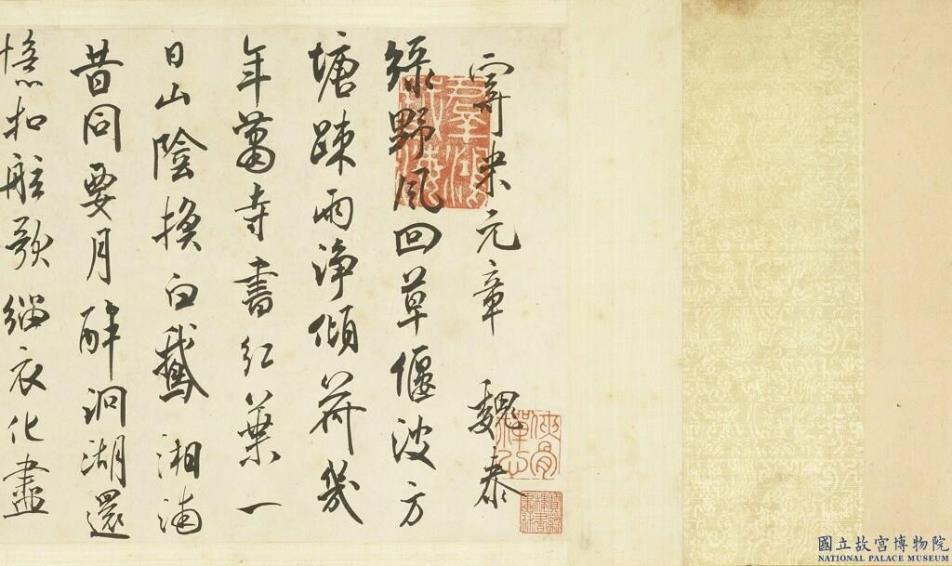 寄米元章 魏泰
綠野風回草偃波方
塘踈雨淨傾荷幾
年蕭寺書紅葉一
日山陰換白鵝湘浦
昔同要月醉洞湖還
憶扣舷歌緇衣化盡
國立故宮博物院
NATIONAL PALACE MUSEUM